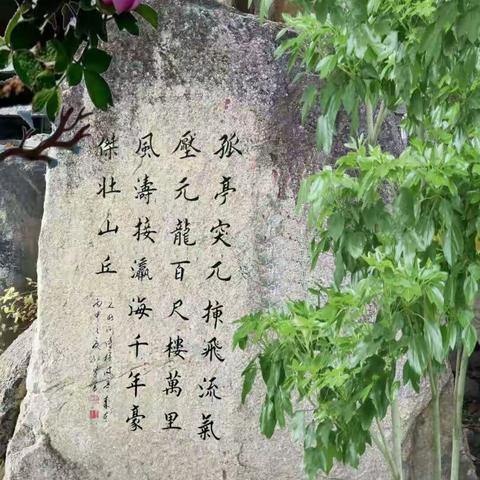 孤亭突兀插飛流氣
壓元龍百尺樓萬里
風濤接瀛海千年豪
傑壯山丘